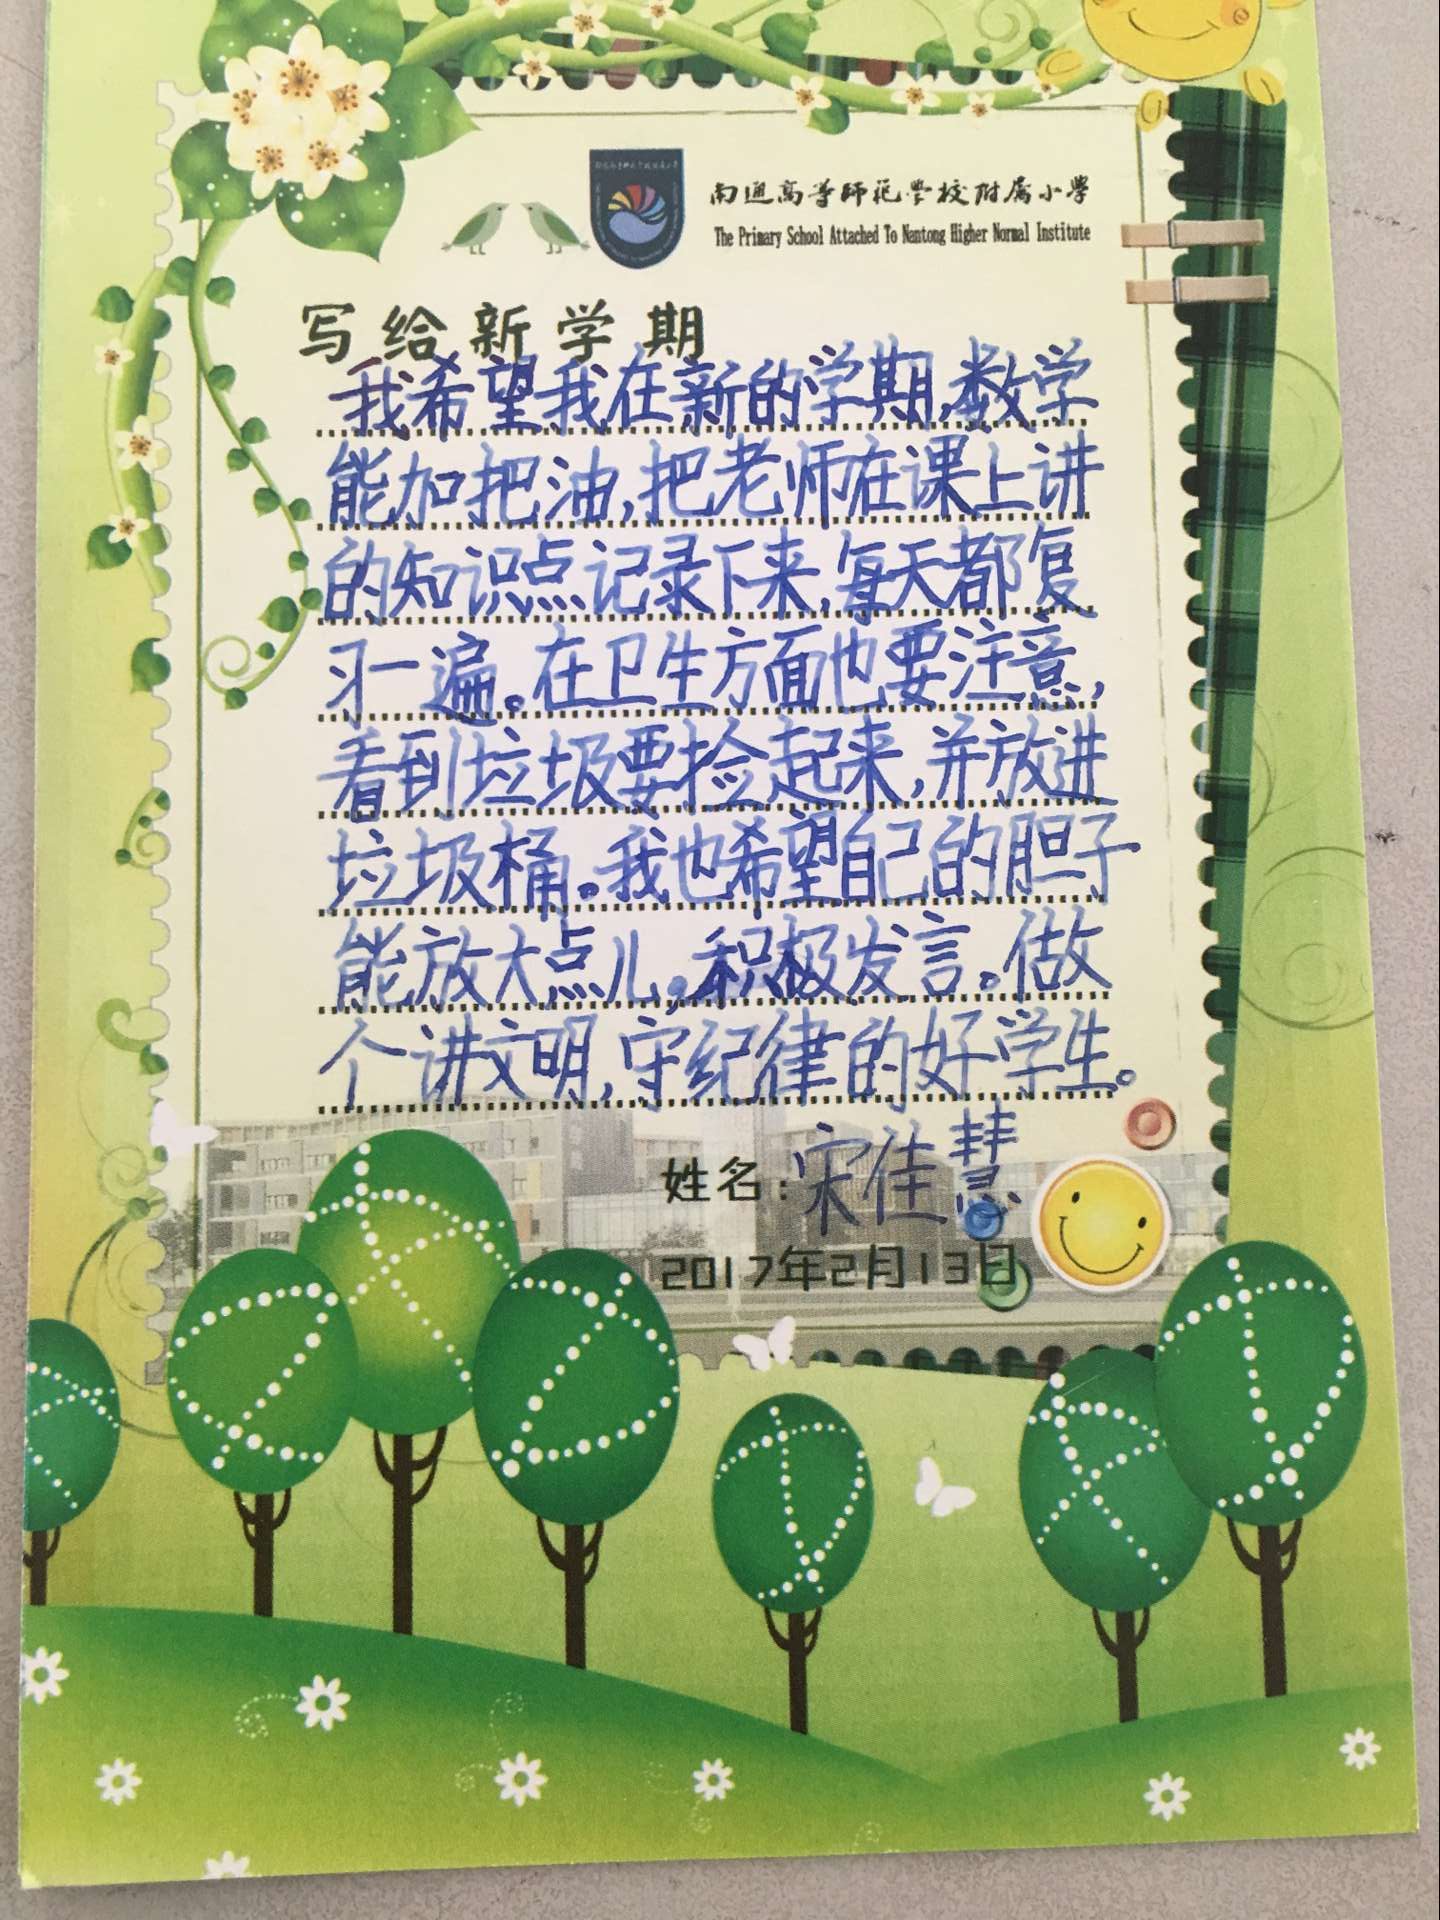 南通高等师范学校附属小学
The Primary School Attached To Nantong Higher Normal Institute
写给新学期
我希望我在新的学期,数学
能加把油,把老师在课上讲
的知识点记录下来,每天都复
习一遍。在卫生方面也要注意,
看到垃圾要捡起来,并放进
垃圾桶。我也希望自己的胆子
能放大点儿,积极发言。做
个讲文明,守纪律的好学生。
姓名:宋佳慧
2017年2月13日